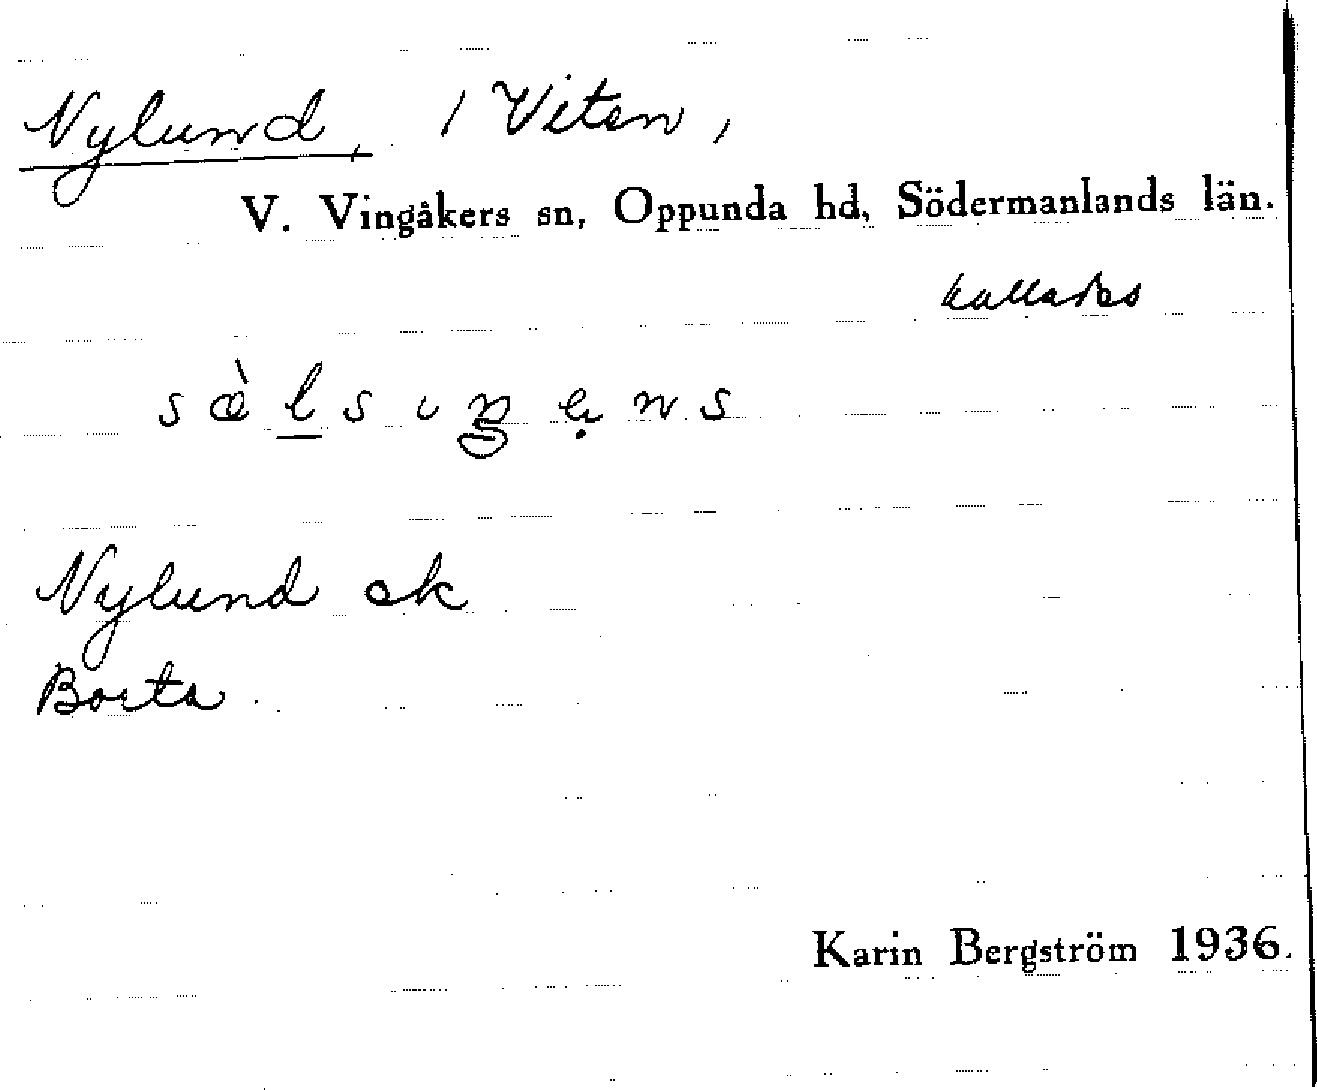 Nylund, / Viten,
V. Vingåkers sn, Oppunda hd, Södermanlands län.
kallades
Nylund ek
Borta.
Karin Bergström 1936.